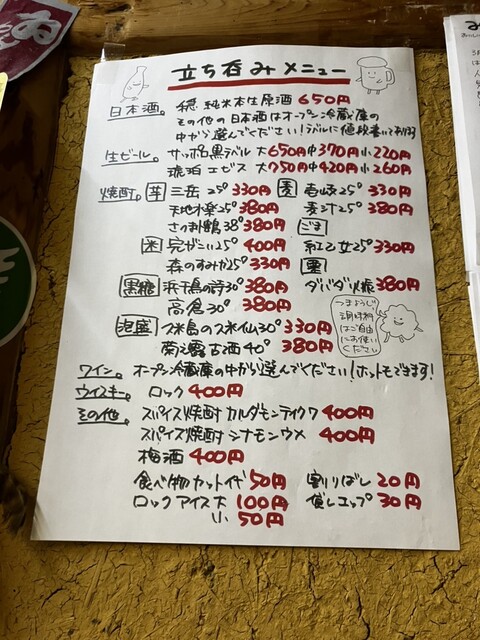 立ち呑みメニュー
日本酒。 穏 純米本生原酒 650円
その他の日本酒はオープン冷蔵庫の
中から選んでください!ラベルに値段書いてあります
生ビール。 サッポロ黒ラベル 大650円中370円小220円
琥珀ヱビス 大750円中420円小260円
焼酎。 芋 三岳 25° 330円 麦 壱岐 25° 330円
天地水楽25° 380円 麦汁25° 380円
さつま揚鶴 38° 380円 ごま
米 完がこい25° 400円 紅乙女25° 330円
森のすずみか25° 330円 栗
黒糖 浜千鳥の詩30° 380円 ダバダ火振 380円
高倉30° 380円
泡盛 久米島の久米仙30° 330円
菊之露古酒40° 380円
つまようじ
調味料
はご自由
にお使い
ください
ワイン。 オープン冷蔵庫の中から選んでください!ホットもできます!
ウイスキー。 ロック 400円
その他。 スパイス焼酎 カルダモンテイクワ 400円
スパイス焼酎 シナモンウメ 400円
梅酒 400円
食べ物カット代 50円 割りばし 20円
ロックアイス大 100円 貸しコップ 30円
小 50円